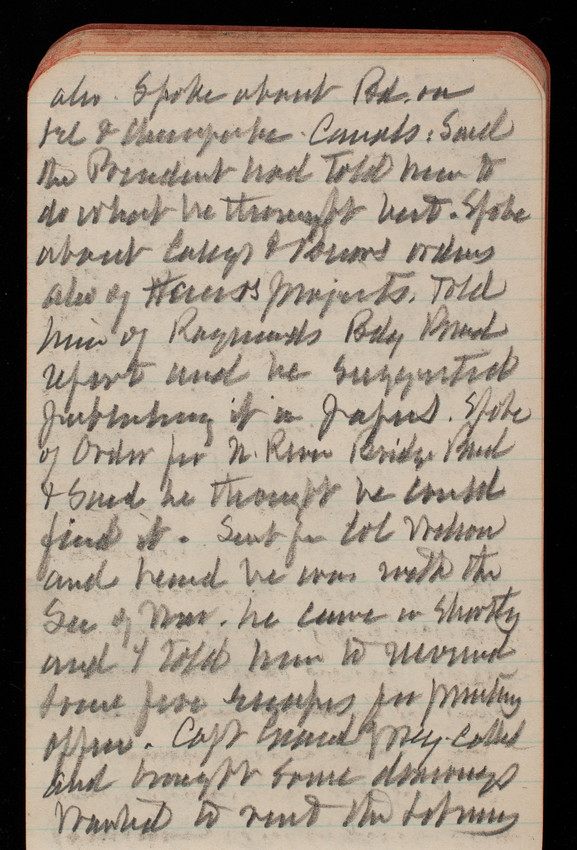 also. Spoke about Bd. on
& Chesapeake Canals: Said
the President had told him to
do what he thought best. Spoke
about Caseys & orders
also of projects. Told
him of Raymonds Bdg Board
report and he suggested
publishing it in papers. Spoke
of Order for N. River Bridge Board
& Said he thought he could
find it. Sent for Col Wilson
and heard he was with the
Sec of War. he came in shortly
and I told him to
some for printing
office. Capt called
and brought some drawings
Wanted to the